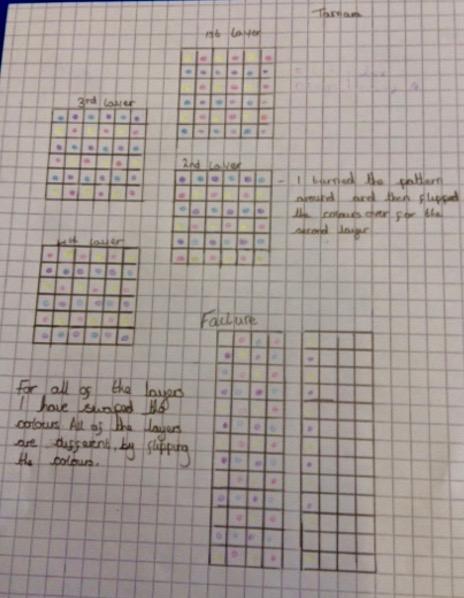 1st Layer
3rd Layer
2nd Layer
- I turned the pattern
around and then flipped
the colours over for the
second layer
Layer
Failure
For all of the layers
I have swaped the
colours. All of the layers
are different, by flipping
the colours.